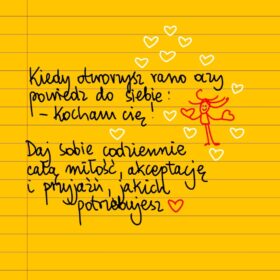 Kiedy otworzysz rano oczy
powiedz do siebie:
– Kocham cię!
Daj sobie codziennie
całą miłość, akceptację
i przyjaźń, jakich
potrzebujesz